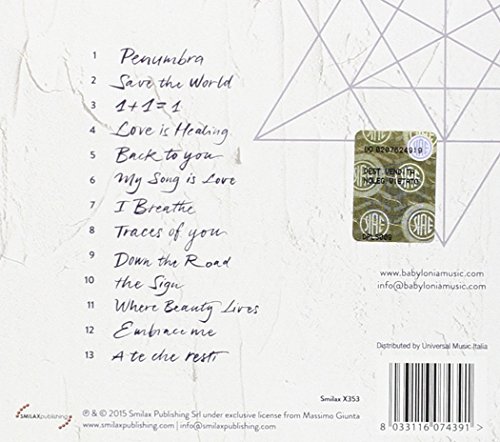 1 Penumbra
2 Save the World
3 1+1=1
4 Love is Healing
5 Back to you
6 My Song is Love
7 I Breathe
8 Traces of you
9 Down the Road
10 the Sign
11 Where Beauty Lives
12 Embrace me
13 A te che resti
DO 0207624919
DEST.VENDITA
NOLEG.VIETATO
SIAE
www.babyloniamusic.com
info@babyloniamusic.com
Distributed by Universal Music Italia
Smilax X353
SMILAXpublishing
℗ & © 2015 Smilax Publishing Srl under exclusive license from Massimo Giunta
www.smilaxpublishing.com info@smilaxpublishing.com
8 033116 074391